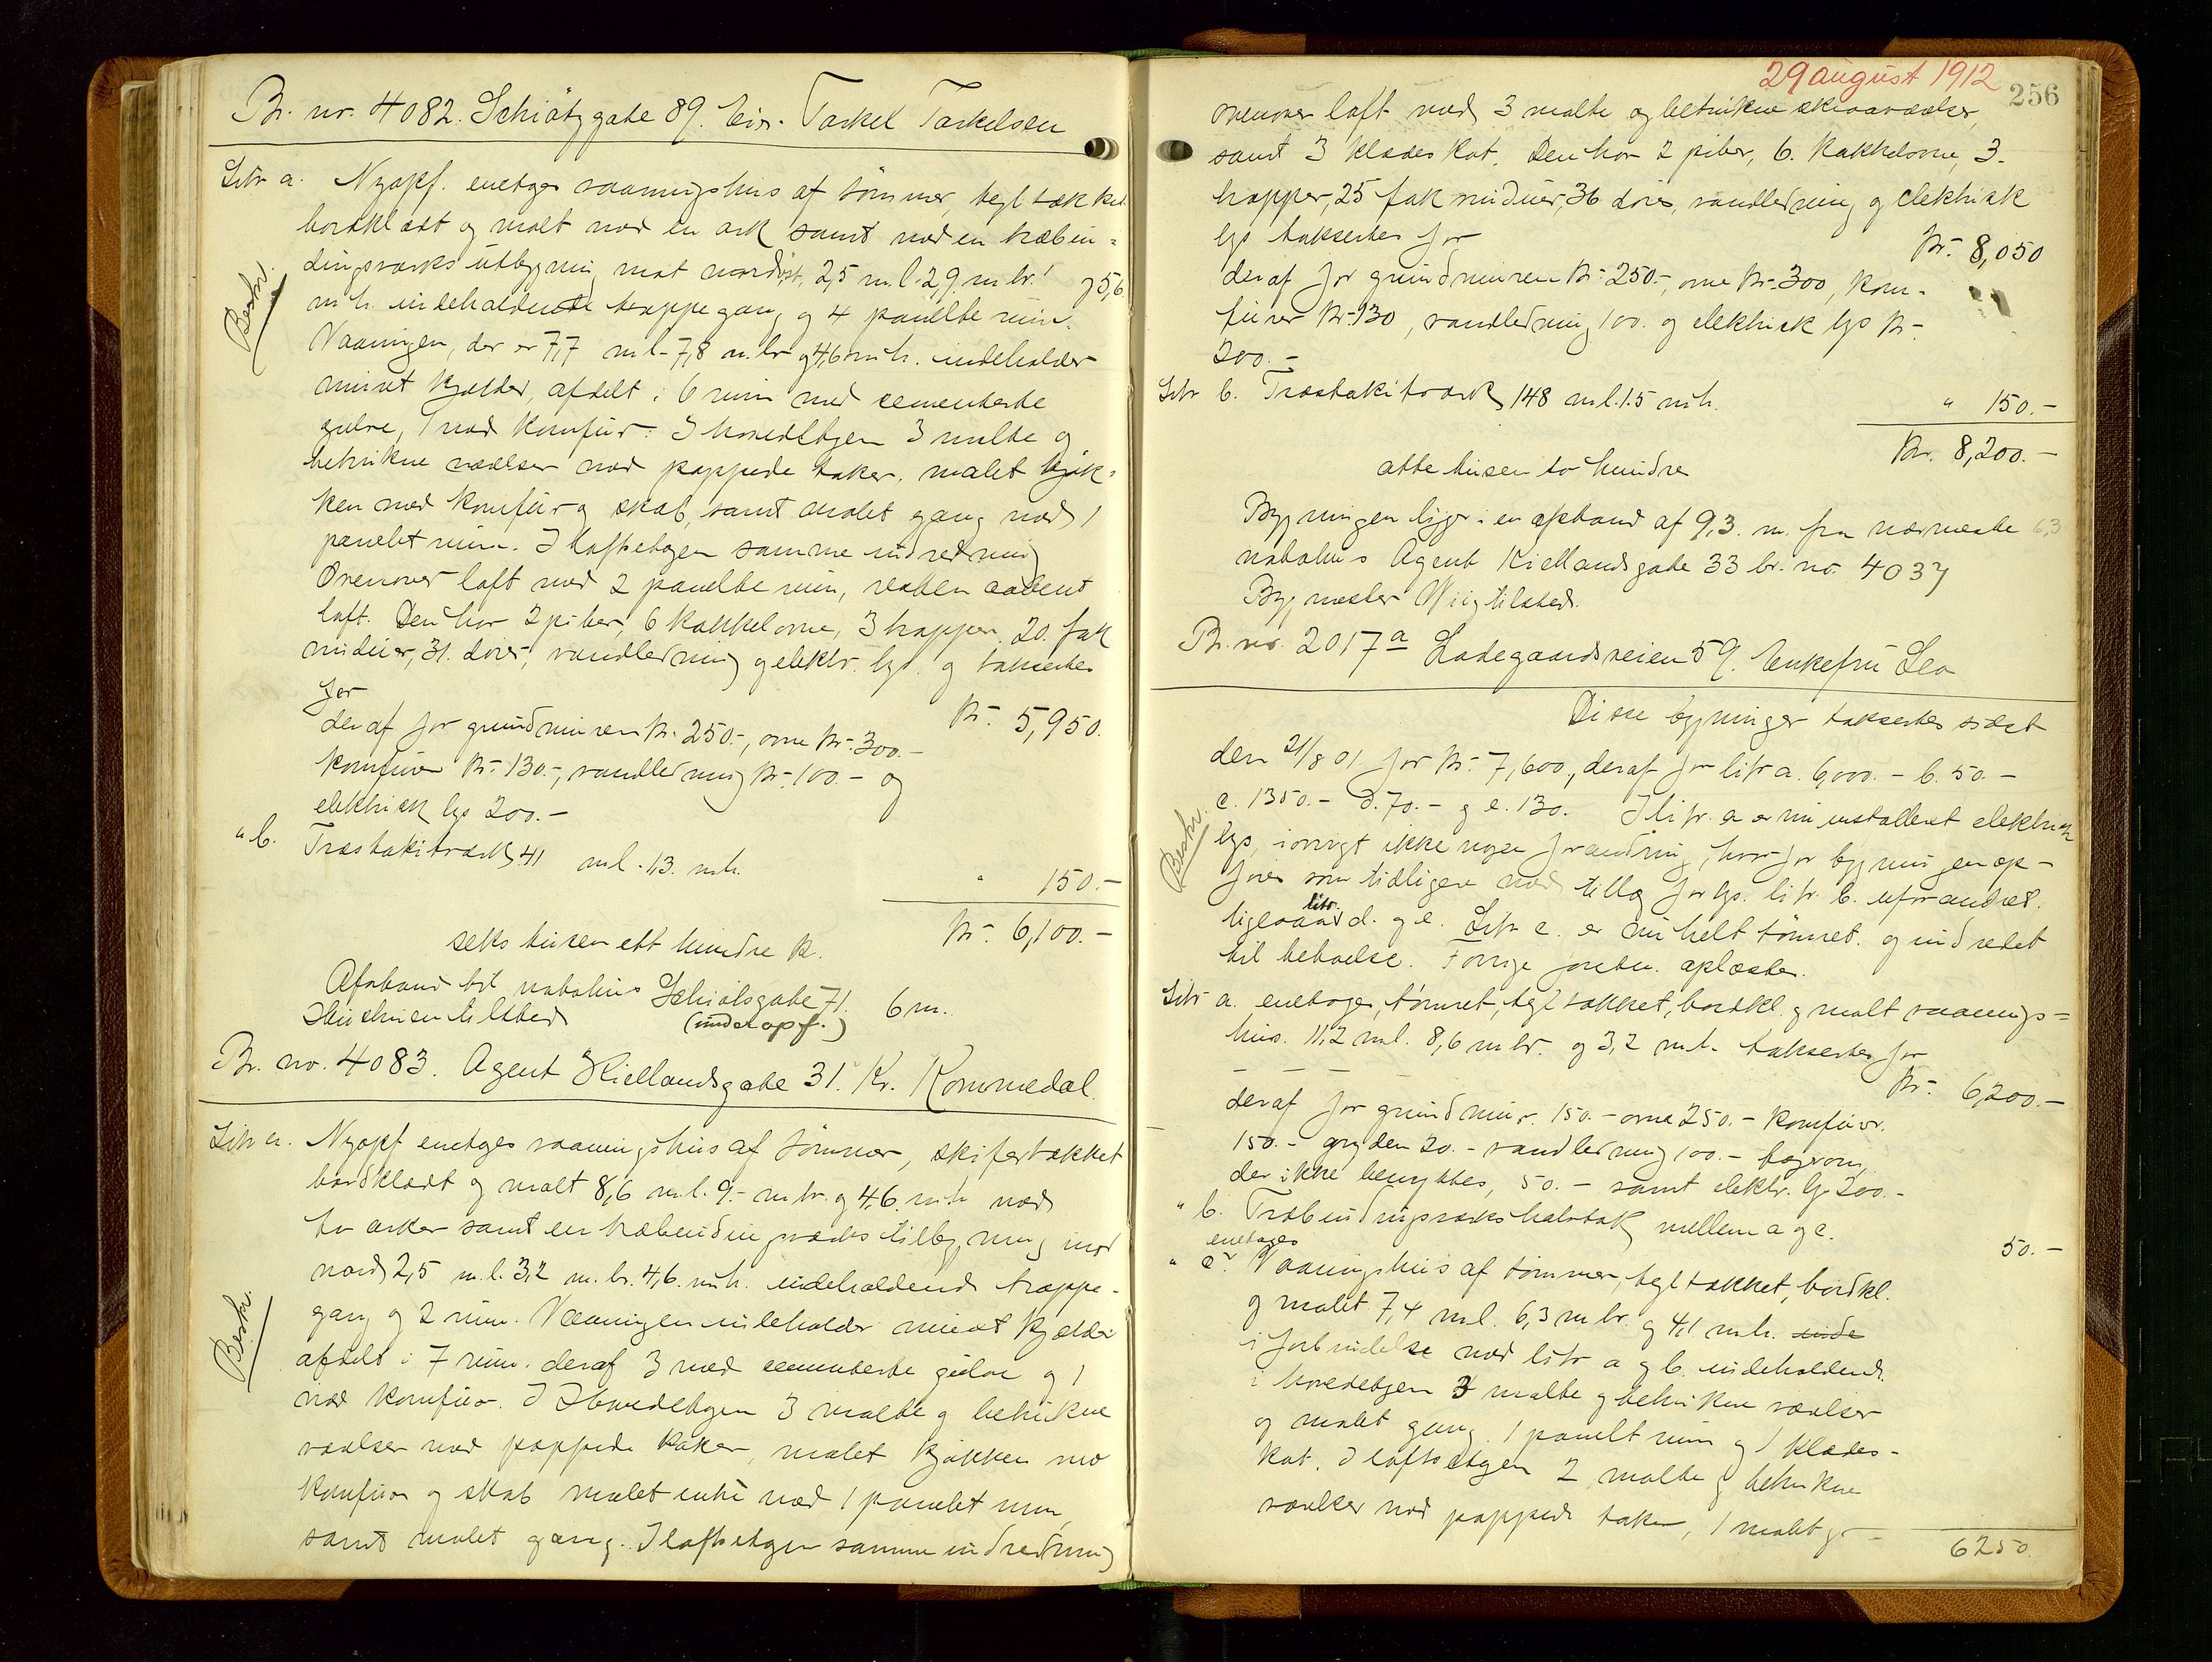 Br. nr. 4082. Schiötzgade 89. Eier Torkel Torkelsen
Litr a. Nyopf. enetages vaaningshus af tömmer, tegltækket
bordklædt og malt med en ark samt med en træbin=
dingsværks utbygning mot nordöst, 2,5 m.l. 2,9 m br. og 5,6
m h. indeholdende trappegang og 4 panelte rum.
Beskr.
Vaaningen, der er 7,7 m l - 7,8 m. br og 4,6 m h. indeholder
muret kjelder, afdelt i 6 rum med cementerte
gulve, 1 med komfur. I hovedetagen 3 malte og
betrukne værelser med pappede taker, malet kjök=
ken med komfur og skab, samt malet gang med 1
panelet rum. I loftsetagen samme indredning
Ovenover loft med 2 panelte rum, resten aabent
loft. Den har 2 piber, 6 kakkelovne, 3 trapper, 20. fak
vinduer, 31. dörer, vandledning og elektr. lys. og takseres
for
Kr. 5,950.
deraf for grundmuren Kr. 250.-, ovne Kr. 300.-
komfurer Kr. 130.-, vandledning Kr. 100.- og
elektrisk lys 200.-
" b. Træstakitværk 41 ml. 1,3. mh.
" 150.-
Kr. 6,100.-
seks tusen ett hundre kr.
Afstand til nabohus Schiötzgade 71. 6 m.
Huseieren tilstede (under opf.)
Br. no. 4083. Agent Kiellandsgade 31. Kr. Kommedal.
Litr a. Nyopf enetages vaaningshus af tömmer, skifertækket
bordklædt og malt 8,6 m.l. 9.- m br. og 4,6. m h med
to arker samt en træbindingsværks tilbygning mod
nord 2,5 m.l. 3,2 m. br. 4,6. m h. indeholdende trappe-
gang og 2 rum. Vaaningen indeholder muret kjelder
Beskr.
afdelt i 7 rum. deraf 3 med cementerte gulve og 1
med komfur. I Hovedetagen 3 malte og betrukne
værelser med pappede taker, malet kjökken med
komfur og skab malet entré med 1 panelet rum,
samt malet gang. I loftsetagen samme indredning
29 august 1912
256
ovenover loft med 3 malte og betrukne skraaværelser,
samt 3 klædeskot. Den har 2 piber, 6. kakkelovne, 3-
trapper, 25 fak vinduer, 36 dörer, vandledning og elektrisk
lys takseres for
Kr. 8,050
deraf for grundmuren Kr. 250.-, ovne Kr. 300, kom-
furer Kr. 130, vandledning 100. og elektrisk lys Kr-
200.-
Litr b. Træstakitværk, 148 m.l. 1.5 mh.
" 150.-
Kr. 8,200.-
otte tusen to hundre
Bygningen ligger i en afstand af 9,3. m. fra nærmeste 6,3
nabohus Agent Kiellandsgade 33 br. no. 4037
Bygmester Wiig tilstede.
Br. no. 2017a Ladegaardsveien 59. Enkefru Lea
Disse bygninger takseres sidst
den 21/8 01 for Kr. 7,600., deraf for litr a. 6,000.- b. 50.-
c. 1350.- d. 70.- og e. 130. I litr. a er nu installeret elektrisk
Beskr.
lys, iövrigt ikke nogen forandring, hvorfor bygningen op-
föres som tidligere med tillæg for lys. litr. b. uforandret.
ligesaa litr. d. og e. Litr c. er nu helt tömret. og indredet
til beboelse. Forrige forretn. oplæstes.
Litr a. enetages, tömret, tegltækket, bordkl. og malt vaanings=
hus. 11,2 ml. 8,6 m br. og 3,2 m.h. takseres for
Kr. 6,200.-
deraf for grundmur. 150.- ovne 250.- komfur.
150.- gryden 20.- vandledning 100.- bagerovn,
der ikke benyttes, 50.- samt elektr. lys 200.-
" b. Træbindingsværks halvtak mellem a og c.
50.-
enetages
" c. Vaaningshus af tömmer, tegltækket, bordkl.
og malet 7,4 m.l. 6,3 m br. og 4,1 m.h. inde
i forbindelse med litr a og b. indeholdende
i hovedetagen 3 malte og betrukne værelser
og malet gang. 1 panelt rum og 1 klædes-
kot. I loftsetagen 2 malte og betrukne
værelser med pappede taker, 1 malet g-
6250.